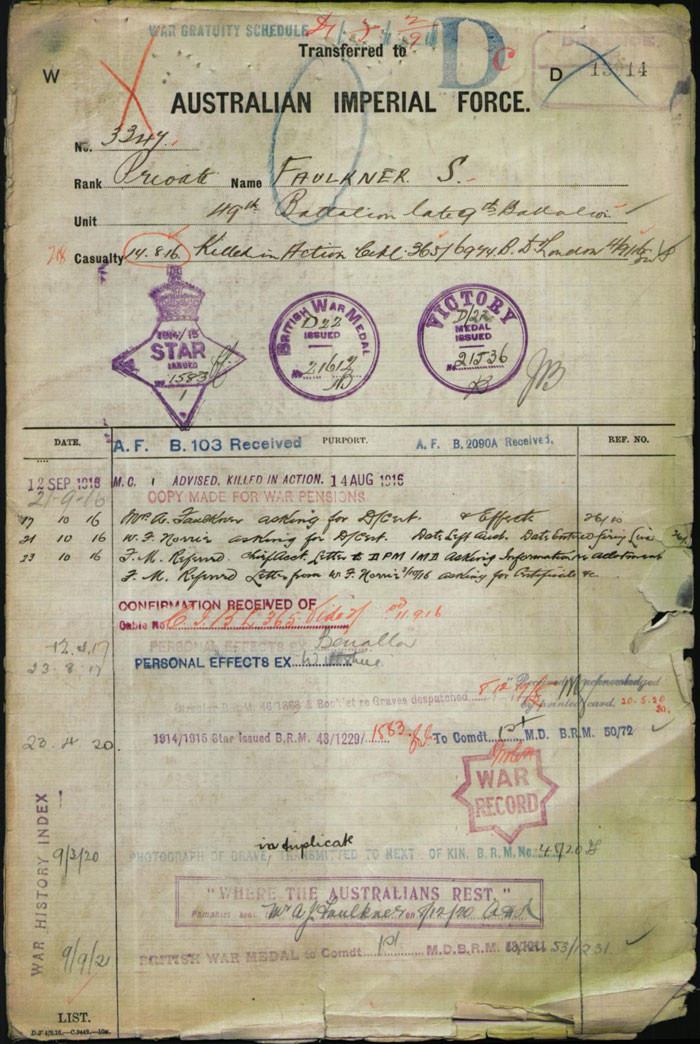 WAR GRATUITY SCHEDULE
Transferred to
Dc
DEFENCE
W
D 13914
AUSTRALIAN IMPERIAL FORCE.
No. 3347
Rank Private Name FAULKNER S.
Unit 49th Battalion late 9th Battalion
Casualty 14.8.16 Killed in Action Cabl 365/6944 B. D London 4/9/16
1914/15 STAR ISSUED No. 1583
1
BRITISH WAR MEDAL D22 ISSUED No 21612
VICTORY D/22 MEDAL ISSUED No. 21536
JB
DATE. PURPORT. REF. NO.
A.F. B.103 Received A.F. B.2090A Received.
12 SEP 1916 M.C. 1 ADVISED. KILLED IN ACTION. 14 AUG 1916
21-9-16 COPY MADE FOR WAR PENSIONS
17 10 16 Mrs A. Faulkner asking for D/Cert. & Effects 26/10
21 10 16 W. F. Norris asking for D/Cert. Date Left Aust. Date Entered firing Line
23 10 16 F. M. Referred Letter to DPM 1MD Asking Information re allotment
F. M. Referred Letter from W. F. Norris asking for Certificate &c.
CONFIRMATION RECEIVED OF
Cable No. C.I.B.L. 365 11.9.16
12.4.17 PERSONAL EFFECTS EX Benalla
23.8.17 PERSONAL EFFECTS EX Wiltshire
Circular B.R.M. 46/1858 & Booklet re Graves despatched 8.12.19 "Receipt acknowledged
by printed card. 20.5.20
23 4 20. 1914/1915 Star Issued B.R.M. 43/1229/ 1583 To Comdt 1st M.D. B.R.M. 50/72
WAR RECORD
WAR HISTORY INDEX
in duplicate
9/3/20 PHOTOGRAPH OF GRAVE, TRANSMITTED TO NEXT OF KIN. B.R.M. No. 45/20
"WHERE THE AUSTRALIANS REST."
Pamphlet sent Mr A J Faulkner on 8/12/20
9/9/21 BRITISH WAR MEDAL to Comdt 1st M.D.B.R.M. 53/1231
LIST.